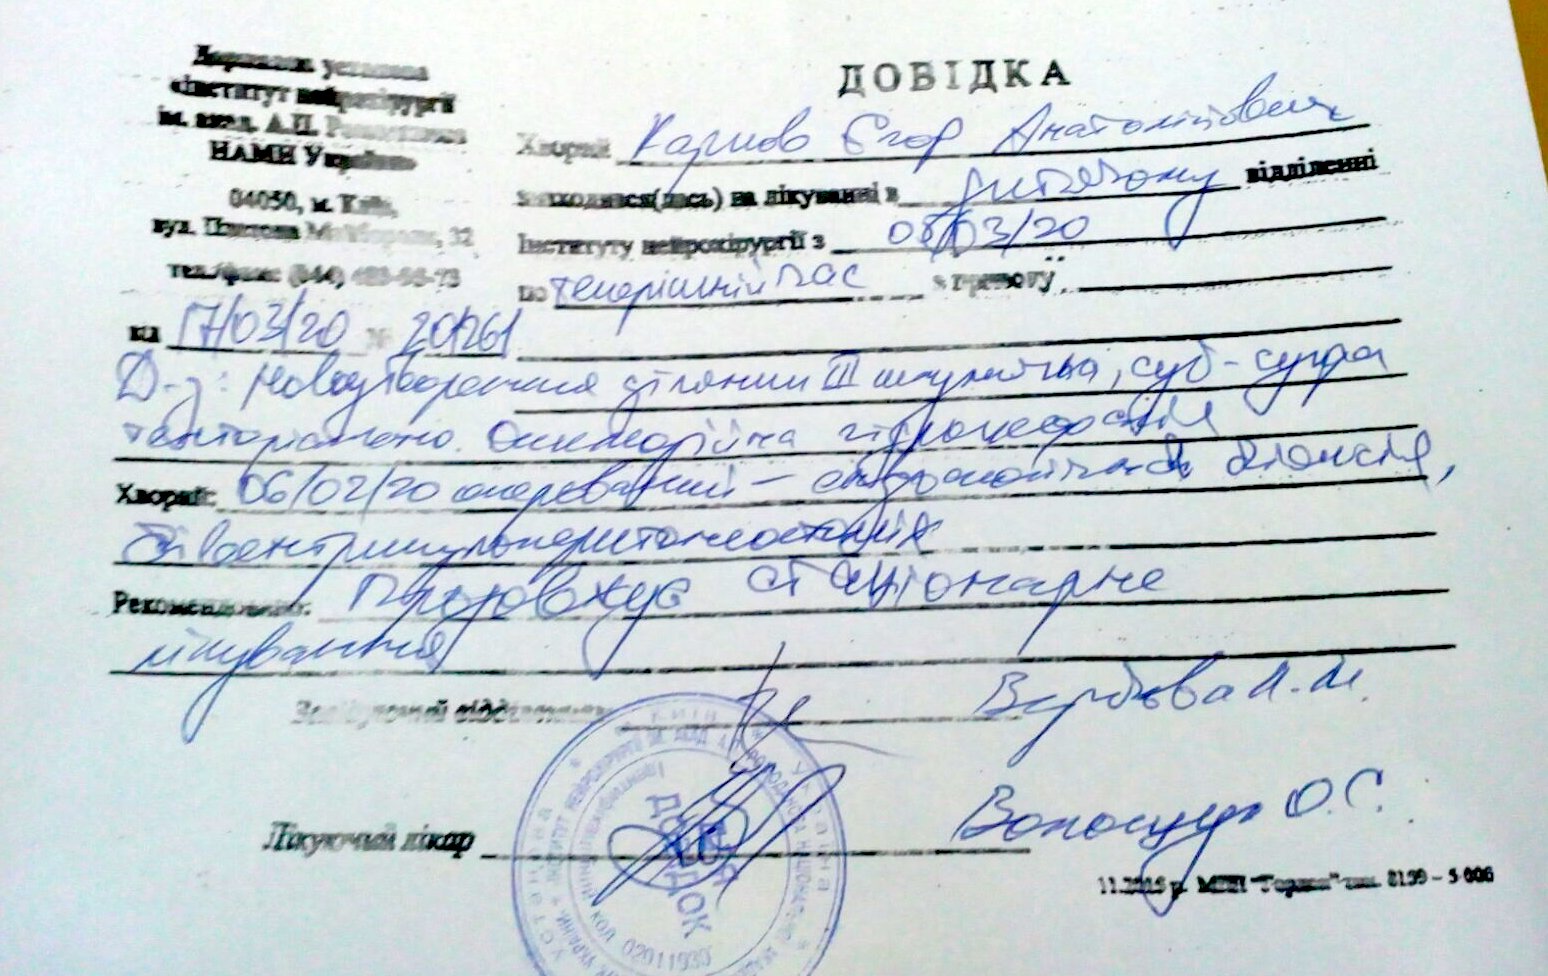 Державна установа
«Інститут нейрохірургії
ім. акад. А.П. Ромоданова
НАМН України»
04050, м. Київ,
вул. Платона Майбороди, 32
тел./факс: (044)
від 17/03/20 №
ДОВІДКА
Хворий Єгор Анатолійович
знаходився(лась) на лікуванні в дитячому відділенні
Інституту нейрохірургії з 03/20
по теперішній час з приводу
Д-з: Новоутворення ділянки III шлуночка, суб-супра
тенторіально. Оклюзійна гідроцефалія
Хворий: 06/02/20 оперований – ендоскопічна біопсія,
Рекомендовано: Продовжує стаціонарне
лікування
Завідуючий відділенням Вербова Л.М.
Лікуючий лікар О.С.
Україна
КОД 02011930